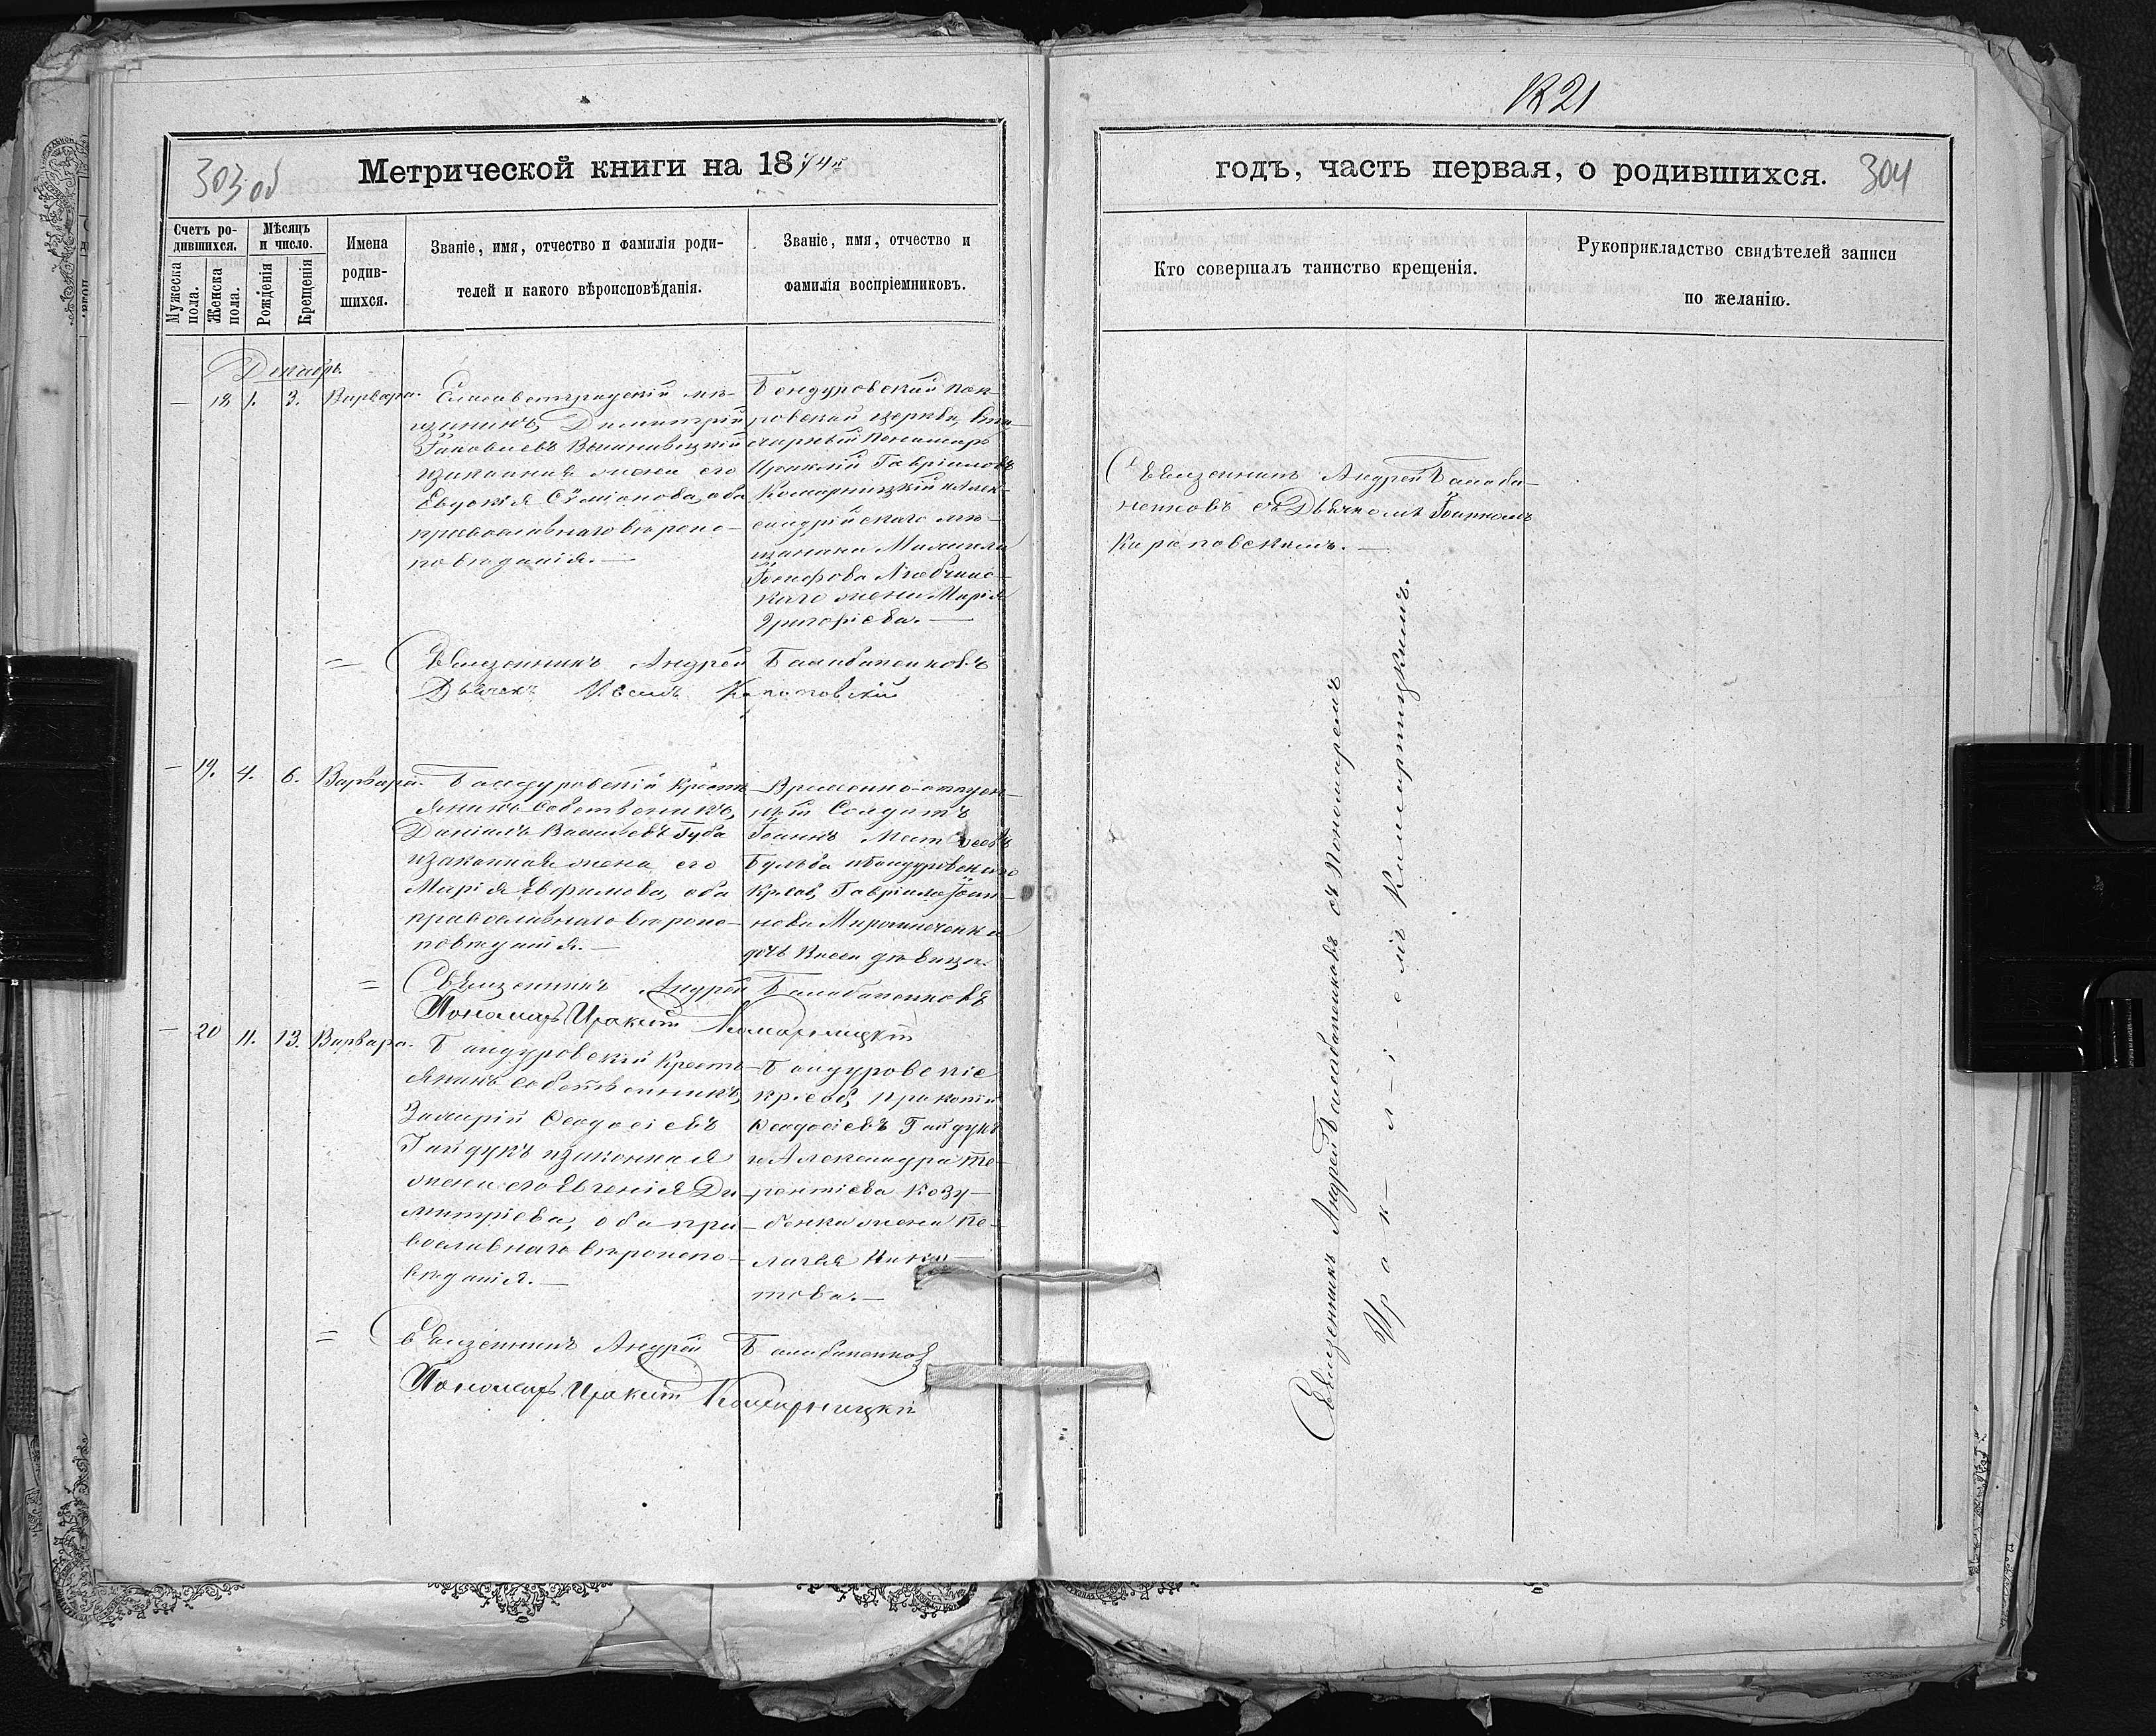 К21
303 об
Метрической книги на 1874й
годъ, часть первая, о родившихся.
304
Счетъ родившихся.
Мужеска пола.
Женска пола.
Мѣсяцъ и число.
Рожденія
Крещенія
Имена родившихся.
Званіе, имя, отчество и фамилія родителей и какого вѣроисповѣданія.
Званіе, имя, отчество и фамилія воспріемниковъ.
Кто совершалъ таинство крещенія.
Рукоприкладство свидѣтелей записи по желанію.
Декабрь
— 18 1. 3. Варвара.
Елисаветградскій мѣ-
щанинъ Димитрій
Яковлевъ
изаконная жена его
Евдокія Сѵмеонова, оба
православнаго вѣроис-
повѣданія. —
Бондуровской Пок-
ровской церкви,
Пономарь
Ираклій Гавріиловъ
Комарницкій и Алек-
сандрійскаго мѣ-
щанина Михаила
Іосифова
жена Марія
Григоріева. —
Священникъ Андрей Балабаненко-
въ съ Дьячкомъ
= Священникъ Андрей Балабаненковъ
Дьячекъ
— 19. 4. 6. Варвара.
Бандуровскій Крестья-
янинъ Собственникъ,
Даніилъ Васильевъ Губа
изаконная жена его
Марія Евфимова, оба
православнаго вѣроис-
повѣданія. —
Временно-отпуск-
ный Солдатъ
Іоаннъ
Бульба иБандуровскаго
Кр. соб, Гавріила Іоан-
нова Мирошниченка
дочь дѣвица.
= Священникъ Андрей Балабаненковъ
Пономарь Ираклій Комарницкій
— 20 11. 13. Варвара.
Бандуровскій Кресть-
янинъ собственникъ,
Захарій Ѳеодосіевъ
Гайдукъ изаконная
жена его Евгенія Ди-
митріева, оба пра-
вославнаго вѣроиспо-
вѣданія. —
Бандуровскіе
кр. соб, Прокопій
Ѳеодосіевъ Гайдукъ
и Александра Те-
рентіева Козу-
бенка жена Пе-
лагея Ники-
това. —
= Священникъ Андрей Балабаненков
Пономарь Ираклій Комарницкій
Священникъ Андрей Балабаненковъ съ Пономаремъ
Иракліемъ Комарницкимъ.